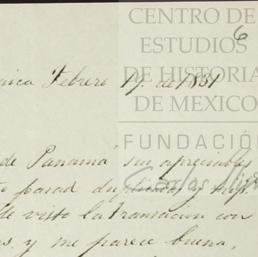 CENTRO DE
ESTUDIOS
DE HISTORIA
DE MEXICO
FUNDACIÓN
Carlos
6
Febrero 17. de 1881
de Panamá sus apreciables
pasad
de visto la transacion con
y me parece buena,